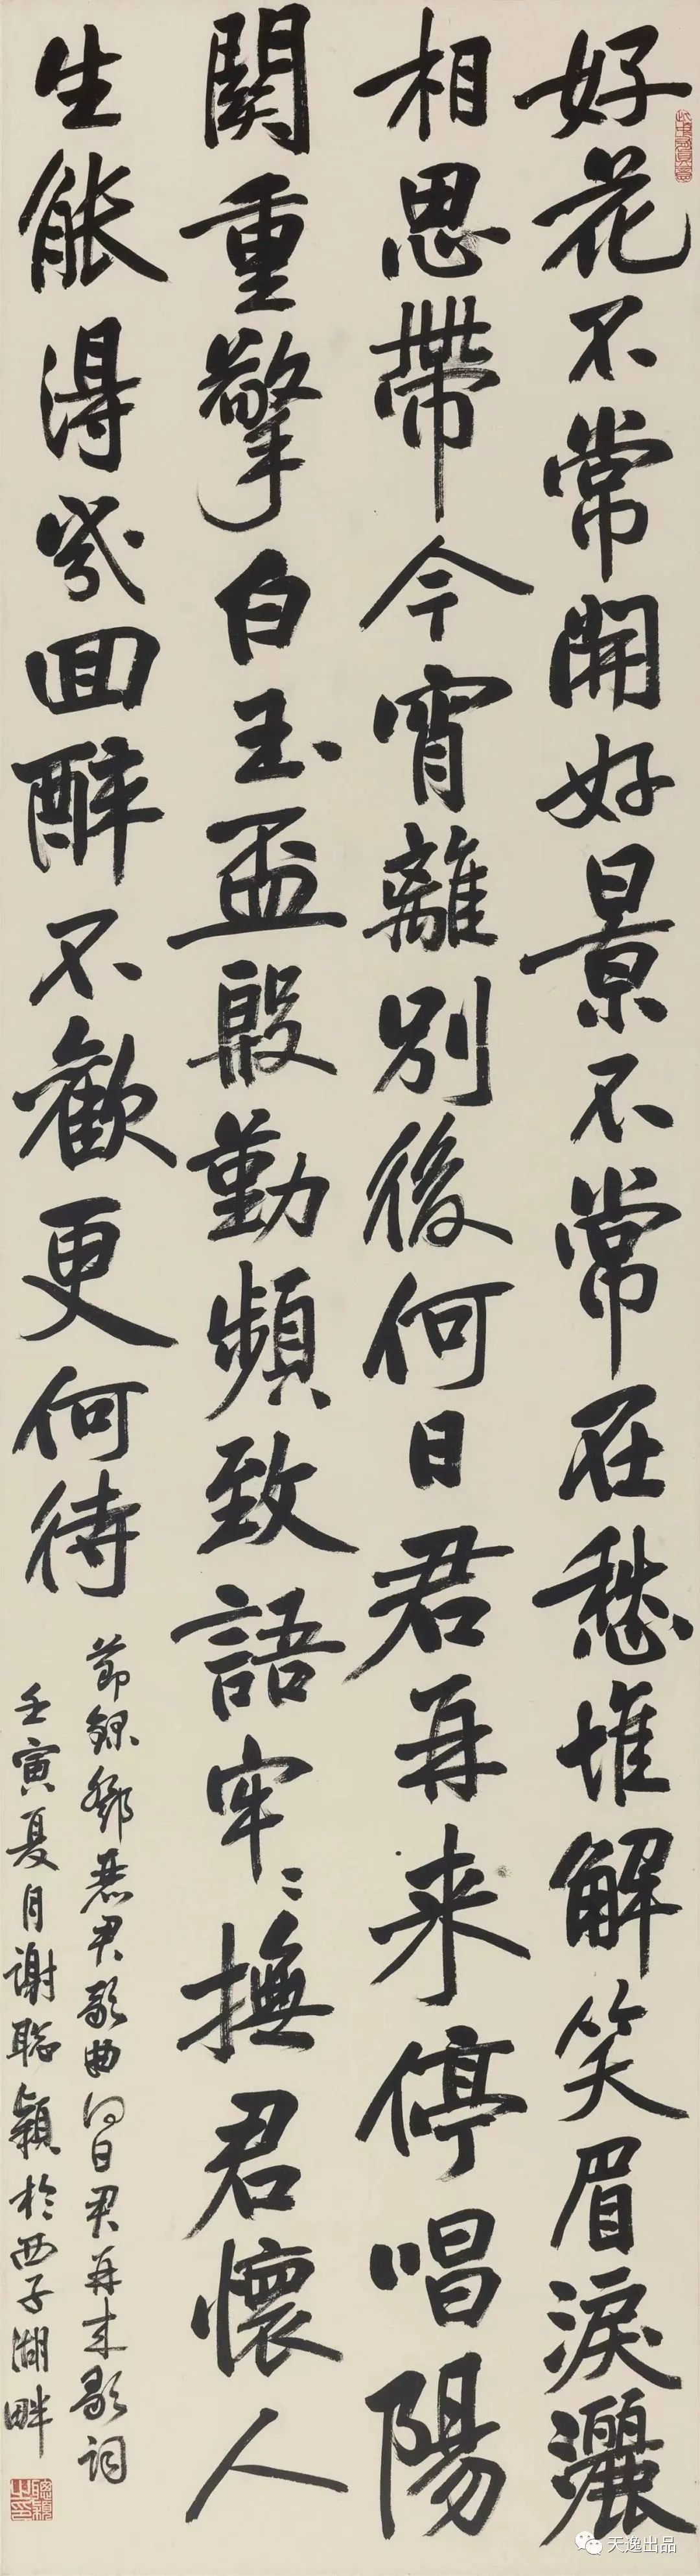 好花不常開好景不常在愁堆解笑眉淚灑
相思帶今宵離別後何日君再来停唱陽
関重擎白玉盃殷勤頻致語牢〻撫君懷人
生能得幾回醉不歡更何待
節錄鄧麗君歌曲何日君再来歌詞
壬寅夏月謝聰穎於西子湖畔
天逸出品